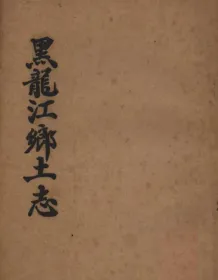 黑龍江鄉土志